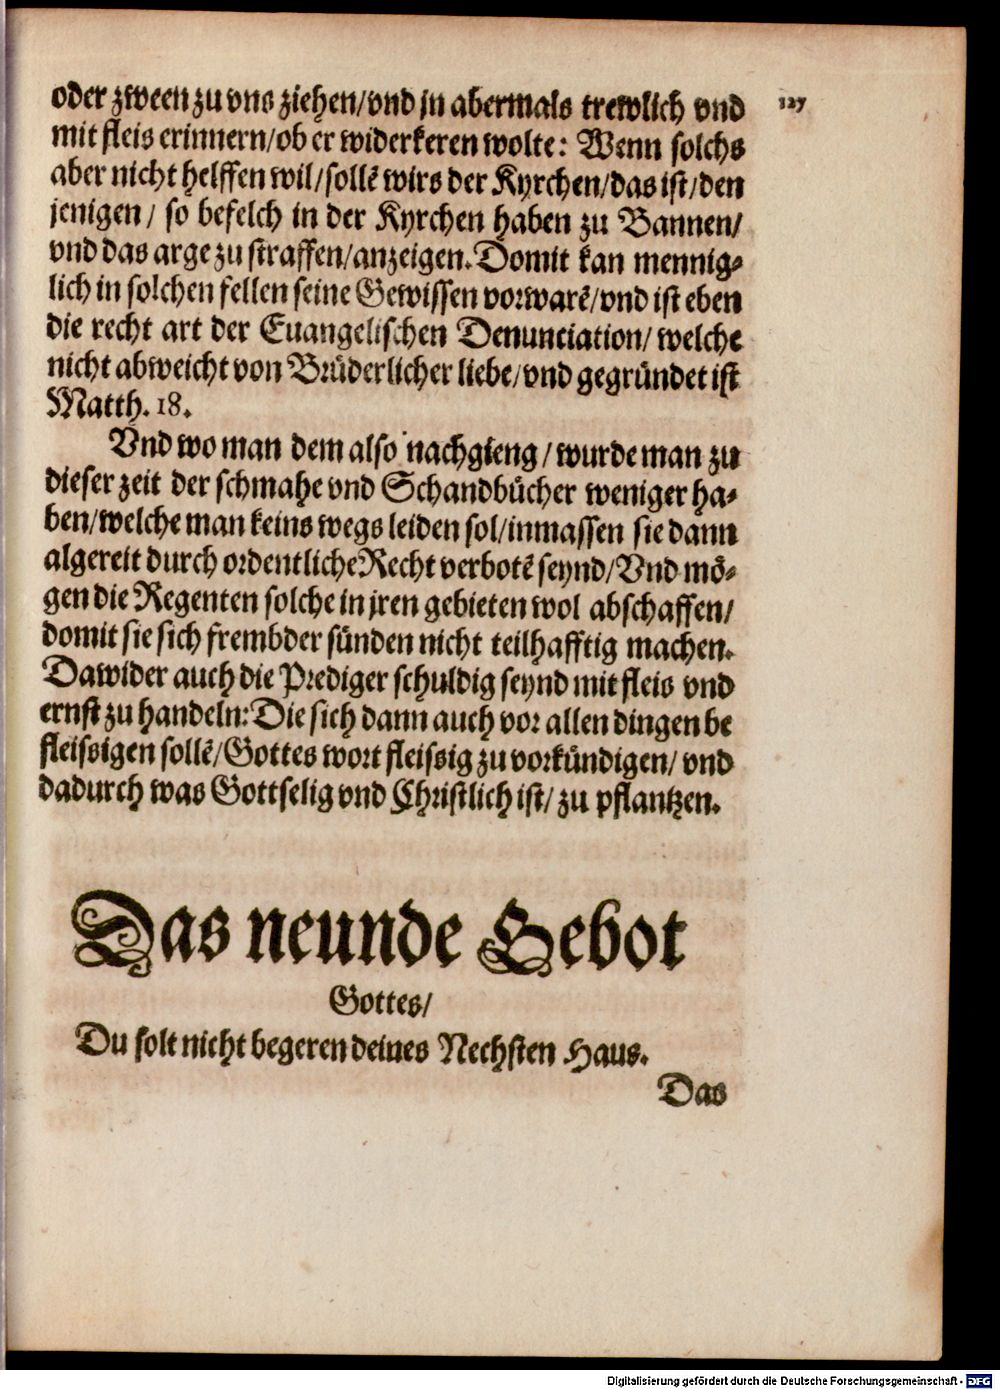 127
oder zween zu vns ziehen/vnd jn abermals trewlich vnd
mit fleis erinnern/ob er widerkeren wolte: Wenn solchs
aber nicht helffen wil/sollē wirs der Kyrchen/das ist/den
jenigen/ so befelch in der Kyrchen haben zu Bannen/
vnd das arge zu straffen/anzeigen. Domit kan mennig-
lich in solchen fellen seine Gewissen vorwarē/vnd ist eben
die recht art der Euangelischen Denunciation/ welche
nicht abweicht von Brüderlicher liebe/vnd gegründet ist
Matth. 18.
Vnd wo man dem also nachgieng/ wurde man zu
dieser zeit der schmahe vnd Schandbücher weniger ha-
ben/welche man keins wegs leiden sol/inmassen sie dann
algereit durch ordentliche Recht verbotē seynd/Vnd mö-
gen die Regenten solche in jren gebieten wol abschaffen/
domit sie sich frembder sünden nicht teilhafftig machen.
Dawider auch die Prediger schuldig seynd mit fleis vnd
ernst zu handeln: Die sich dann auch vor allen dingen be
fleissigen sollē/Gottes wort fleissig zu vorkündigen/ vnd
dadurch was Gottselig vnd Christlich ist/ zu pflantzen.
Das neunde Gebot
Gottes/
Du solt nicht begeren deines Nechsten Haus.
Das
Digitalisierung gefördert durch die Deutsche Forschungsgemeinschaft - DFG